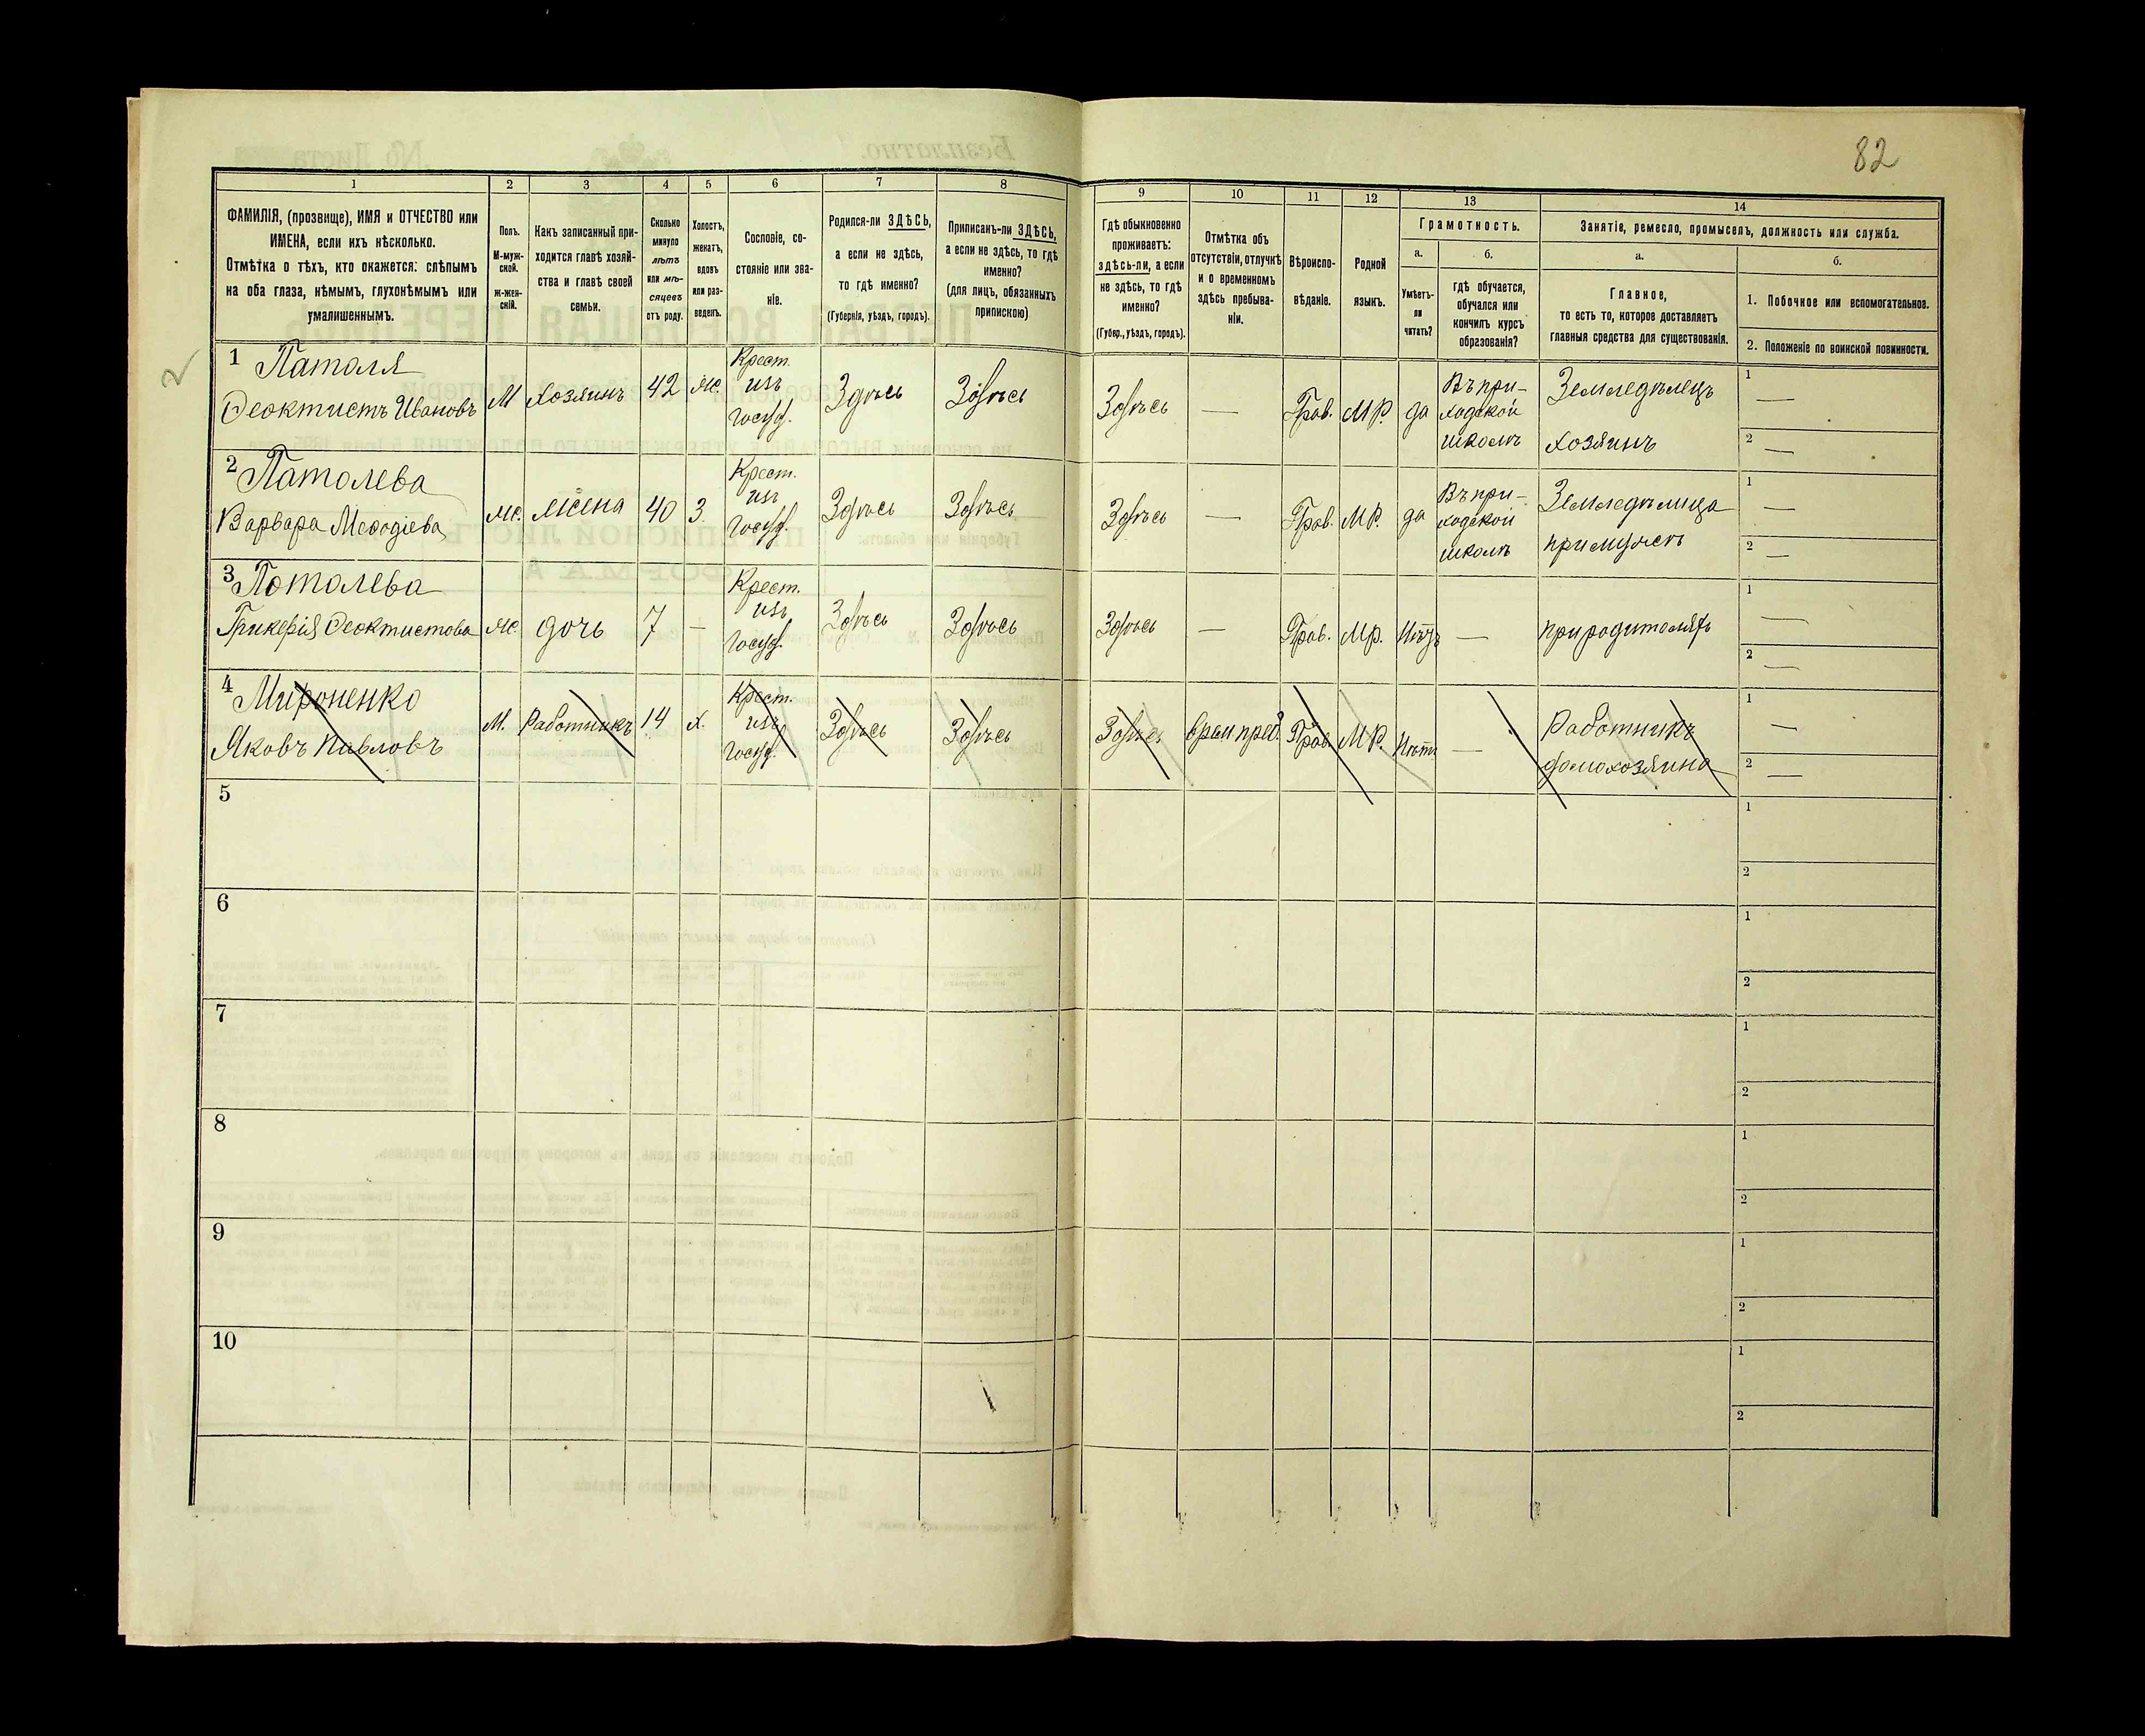 82
1 2 3 4 5 6 7 8 9 10 11 12 13 14
ФАМИЛІЯ, (прозвище), ИМЯ и ОТЧЕСТВО или
ИМЕНА, если ихъ нѣсколько.
Отмѣтка о тѣхъ, кто окажется: слѣпымъ
на оба глаза, нѣмымъ, глухонѣмымъ или
умалишеннымъ.
Полъ.
М-муж-
ской.
ж-жен-
скій.
Какъ записанный при-
ходится главѣ хозяй-
ства и главѣ своей
семьи.
Сколько
минуло
лѣтъ
или мѣ-
сяцевъ
отъ роду.
Холостъ,
женатъ,
вдовъ
или раз-
веденъ.
Сословіе, со-
стояніе или зва-
ніе.
Родился-ли ЗДѢСЬ,
а если не здѣсь,
то гдѣ именно?
(Губернія, уѣздъ, городъ).
Приписанъ-ли ЗДѢСЬ,
а если не здѣсь, то гдѣ
именно?
(для лицъ, обязанныхъ
припискою)
Гдѣ обыкновенно
проживаетъ:
здѣсь-ли, а если
не здѣсь, то гдѣ
именно?
(Губер., уѣздъ, городъ).
Отмѣтка объ
отсутствіи, отлучкѣ
и о временномъ
здѣсь пребыва-
ніи.
Вѣроиспо-
вѣданіе.
Родной
языкъ.
Грамотность.
а.
Умѣетъ-
ли
читать?
б.
гдѣ обучается,
обучался или
кончилъ курсъ
образованія?
Занятіе, ремесло, промыселъ, должность или служба.
а.
Главное,
то есть то, которое доставляетъ
главныя средства для существованія.
б.
1. Побочное или вспомогательное.
2. Положеніе по воинской повинности.
1 Паталя
Ѳеоктистъ Ивановъ
М Хозяинъ 42 ж.
Крест.
изъ
Госуд.
Здѣсь Здѣсь Здѣсь — Прав. МР. да
Въ при-
ходской
школѣ
Земледѣлецъ
хозяинъ
1 —
2 —
2 Паталева
Варвара Меѳодіева
ж. жена 40 З.
Крест.
изъ
Госуд.
Здѣсь Здѣсь Здѣсь — Прав. МР. да
Въ при-
ходской
школѣ
Земледѣлица
при мужѣ
1 —
2 —
3 Поталева
Гликерія Ѳеоктистова
ж. дочь 7 —
Крест.
изъ
Госуд.
Здѣсь Здѣсь Здѣсь Прав. Мр. Нѣтъ — при родителях
1 —
2 —
4 Мироненко
Яковъ Павловъ
М. Работникъ 14 х.
Крест.
изъ
Госуд.
Здѣсь Здѣсь Здѣсь Врем преб. Прав. МР. Нѣтъ —
Работникъ
домохозяина
1 —
2 —
5
1
2
6
1
2
7
1
2
8
1
2
9
1
2
10
1
2